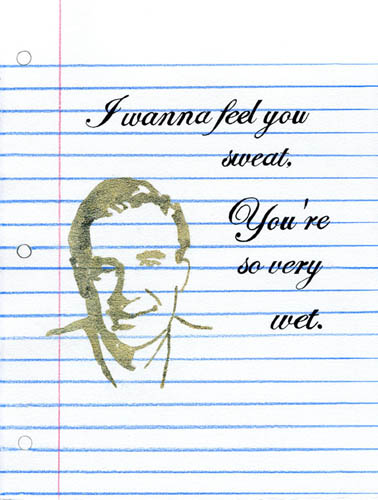 I wanna feel you
sweat,
You're
so very
wet.